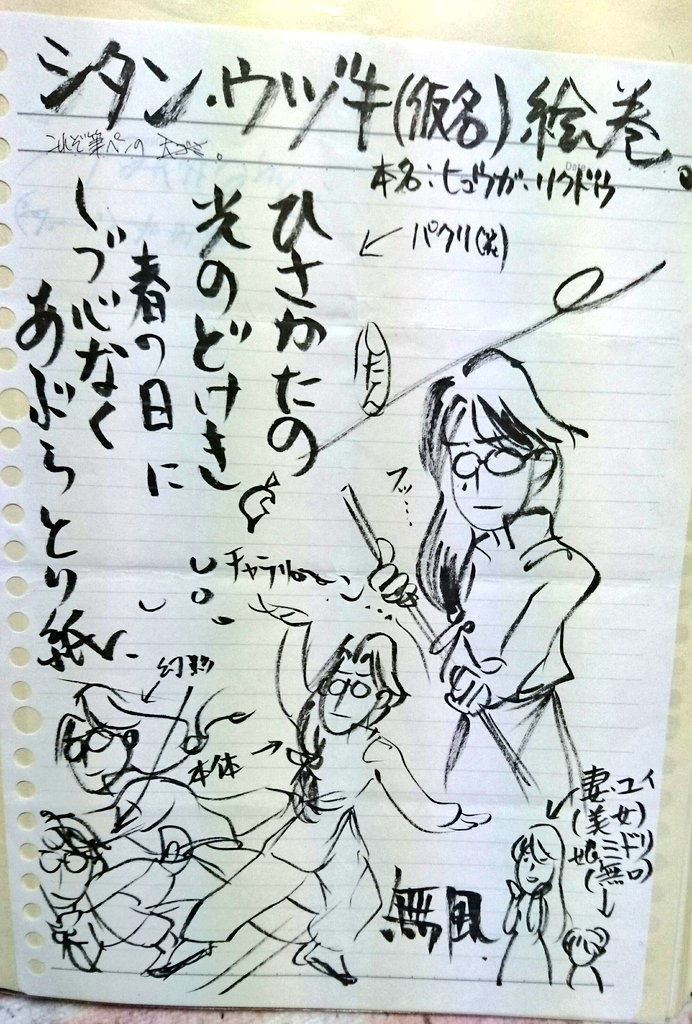 シタン・ウヅキ(仮名)絵巻。
これぞ筆ペンの
本名:ヒュウガ・リクドウ
パクリ(笑)
ひさかたの
光のどけき
春の日に
しづ心なく
あぶらとり紙
したん
フッ…
幻影
本体
無風
妻・ユイ
(美女)
娘・ミドリ
(無口)